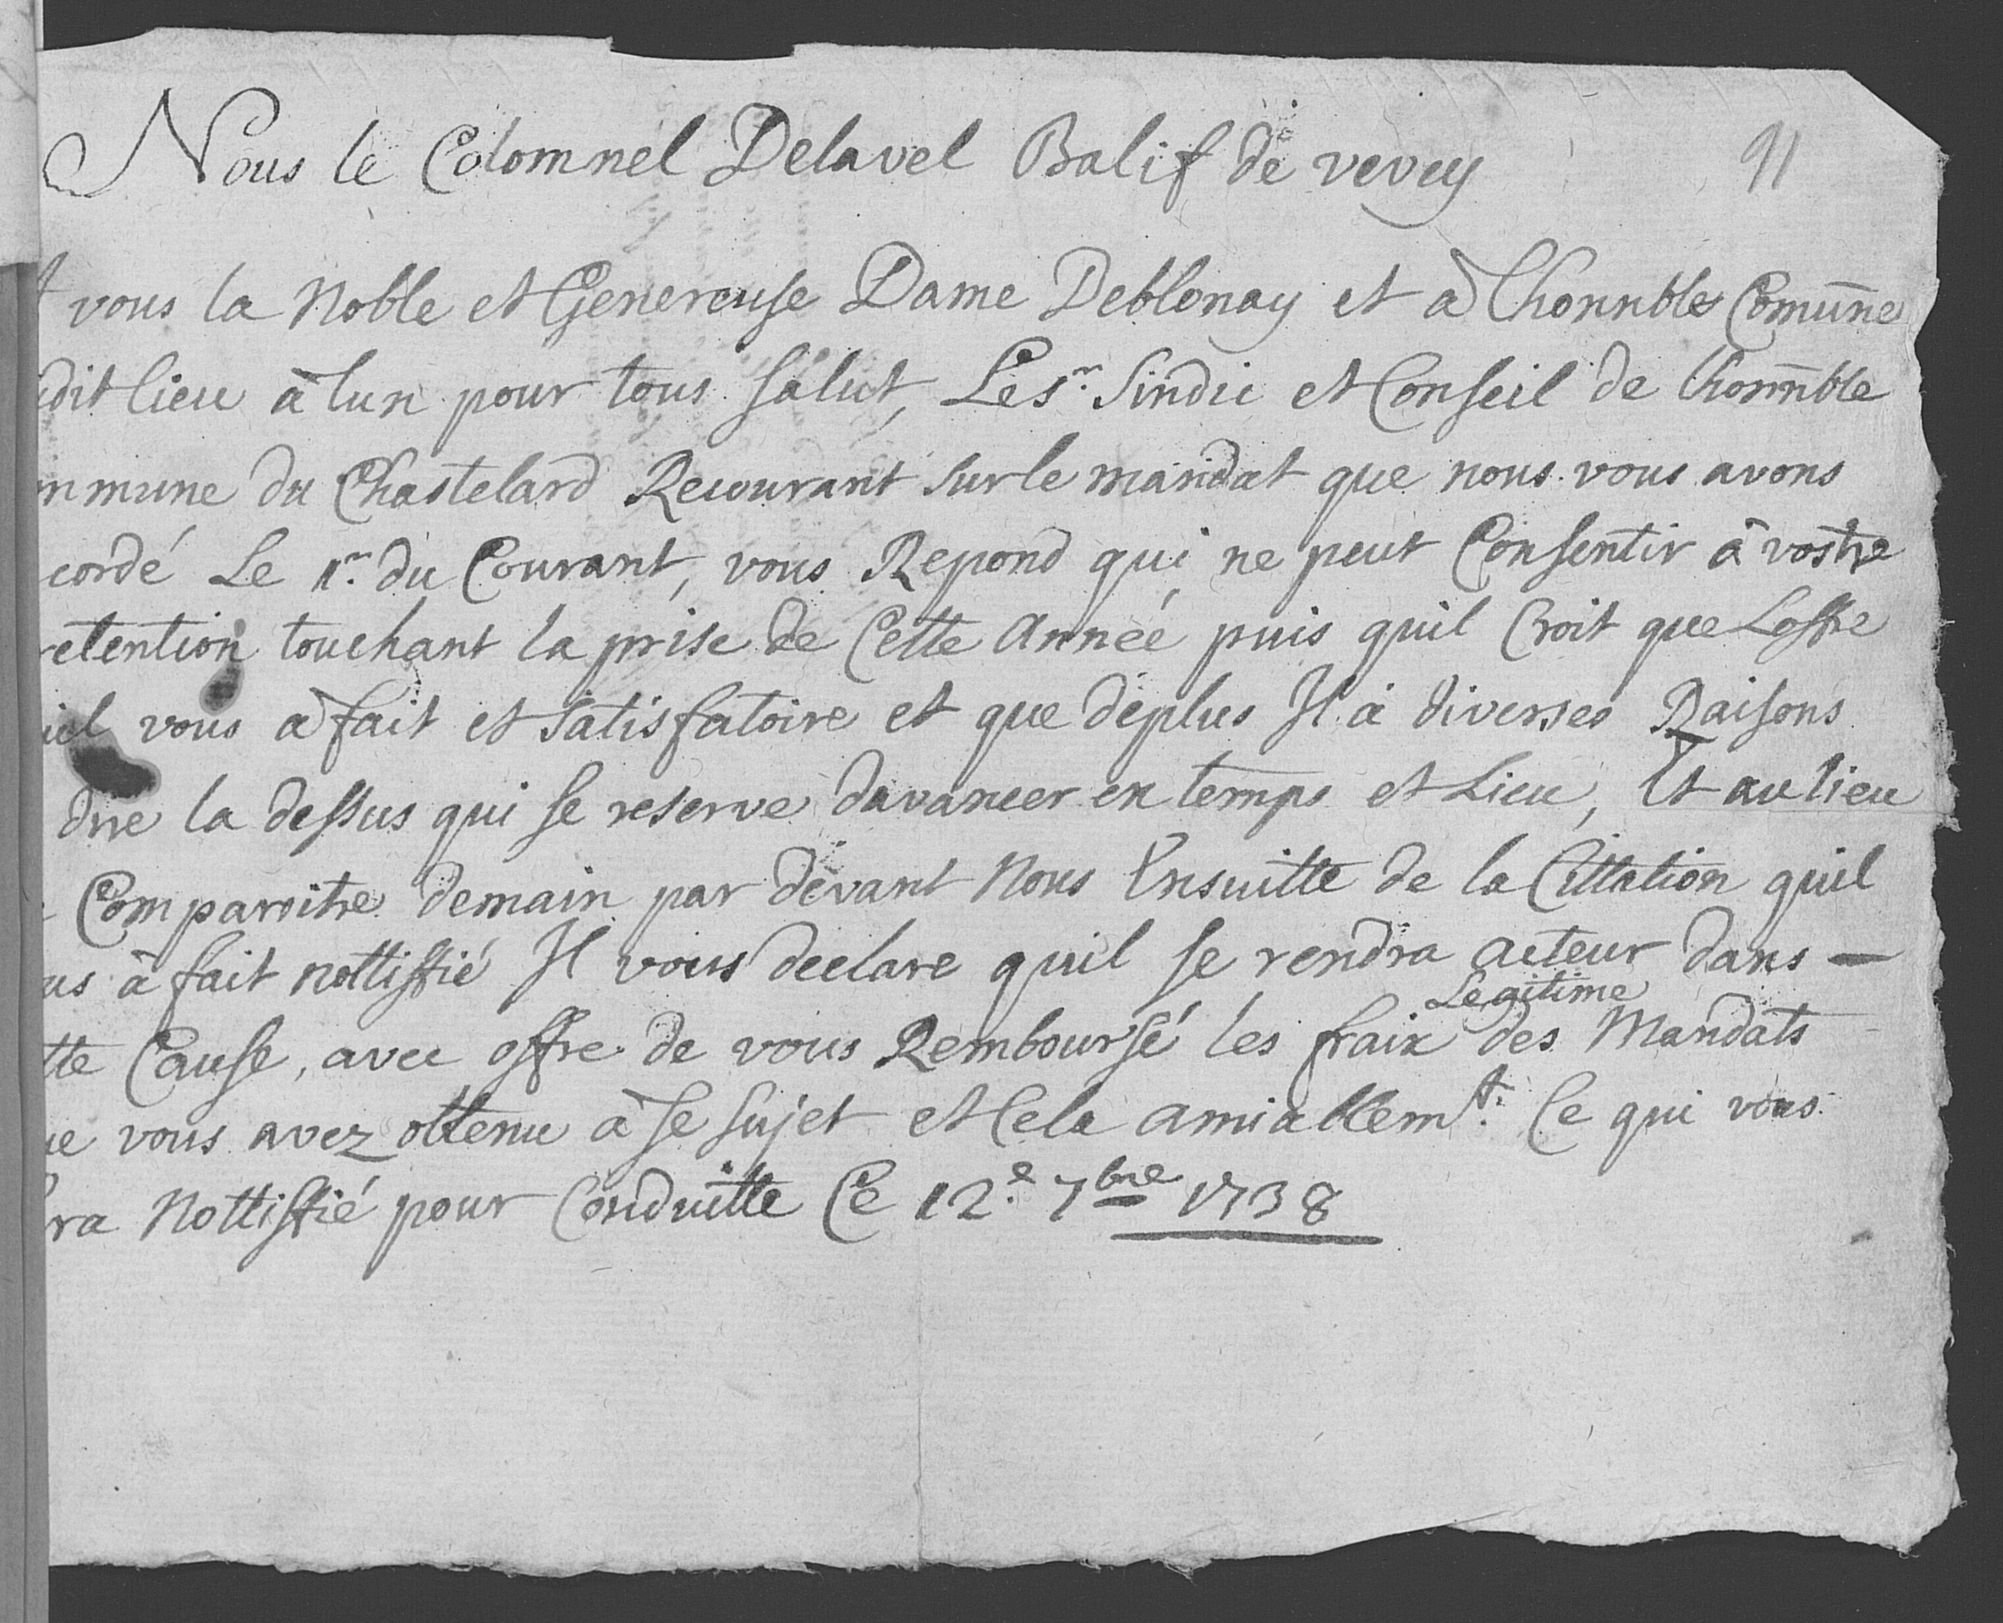 Nous le Colomnel Delavel Balif de vevey
91
vous la Noble et Genereuse Dame Deblonay et à Lhonnble Comune
dit lieu à lun pour tous salut, Les.rs Sindic et Conseil de Lhonnble
mmune du Chastelard Recourant sur le mandat que nous vous avons
cordé Le 1.r du Courant, vous Repond qui ne peut Consentir à vostre
retention touchant la prise de Cette Année puis quil Croit que Loffre
vous a fait et satisfatoire et que deplus Il à diverses Raisons
dire la dessus qui se reserve davancer en temps et Lieu, Et au lieu
Comparoitre demain par devant Nous Ensuitte de la Cittation quil
us à fait nottiffié Il vous declare quil se rendra acteur dans —
Legitime
tte Cause, avec offre de vous Remboursé les fraix des Mandats
ue vous avez obtenu à se sujet et Cela amiablem.t Ce qui vous
ra Nottiffié pour Conduitte Ce 12.e 7bre 1738